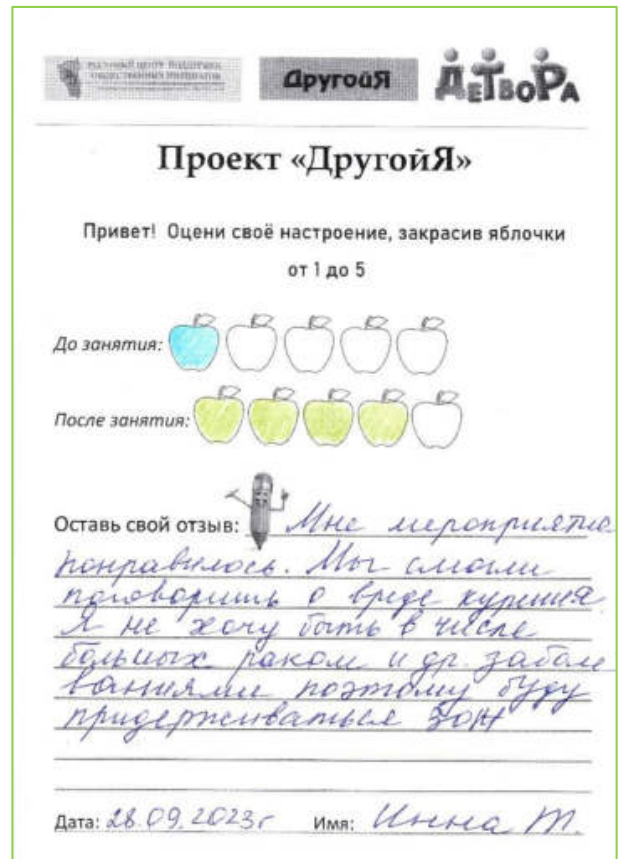 РЕСУРСНЫЙ ЦЕНТР ПОДДЕРЖКИ
ОБЩЕСТВЕННЫХ ИНИЦИАТИВ
ДругойЯ
ДЕТВОРА
Проект «ДругойЯ»
Привет! Оцени своё настроение, закрасив яблочки
от 1 до 5
До занятия:
После занятия:
Оставь свой отзыв: Мне мероприятие
понравилось. Мы смогли
поговорить о вреде курения
Я не хочу быть в числе
больных раком и др. забол
ваниями поэтому буду
придерживаться ЗОЖ
Дата: 28.09.2023г Имя: Инна Т.